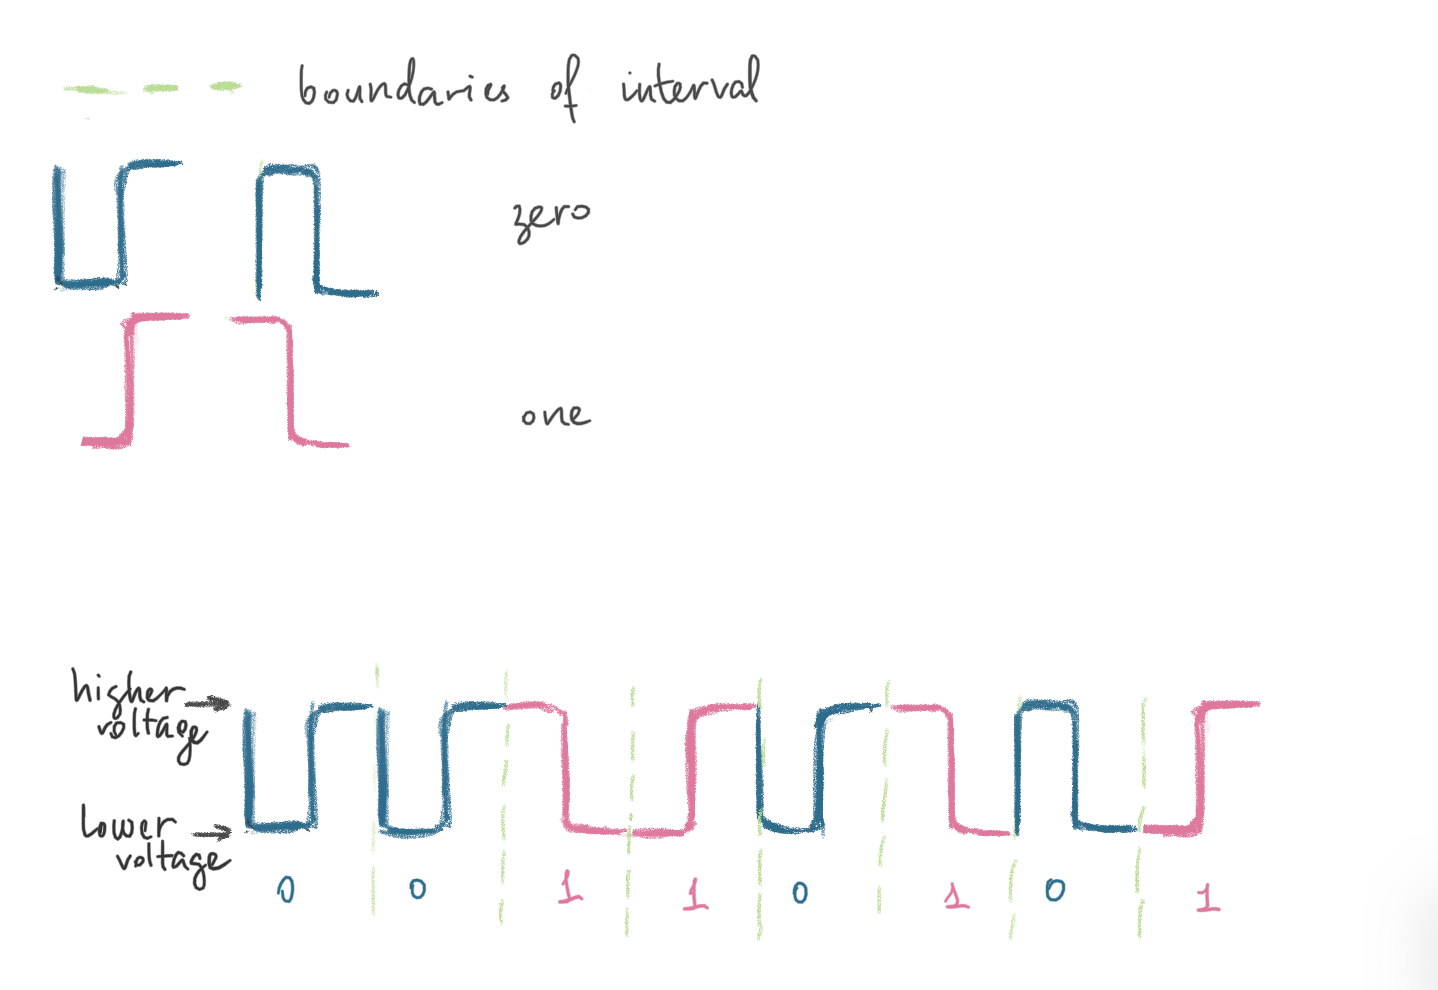 boundaries of interval
zero
one
higher
voltage
lower
voltage
0 0 1 1 0 1 0 1